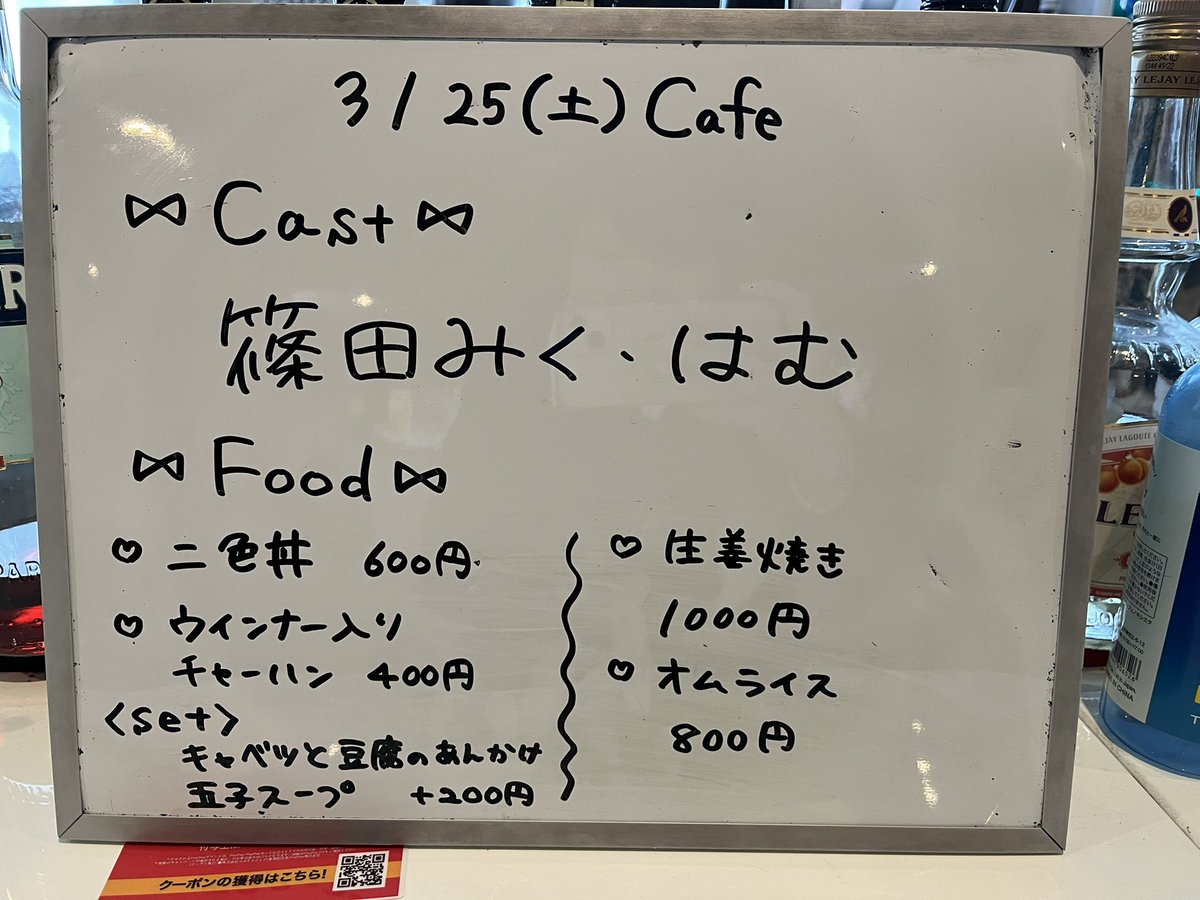 3/25(土) Cafe
Cast
篠田みく・はむ
Food
♡ 二色丼 600円
♡ ウインナー入り
チャーハン 400円
<set>
キャベツと豆腐のあんかけ
玉子スープ +200円
♡ 生姜焼き
1000円
♡ オムライス
800円
クーポンの獲得はこちら!